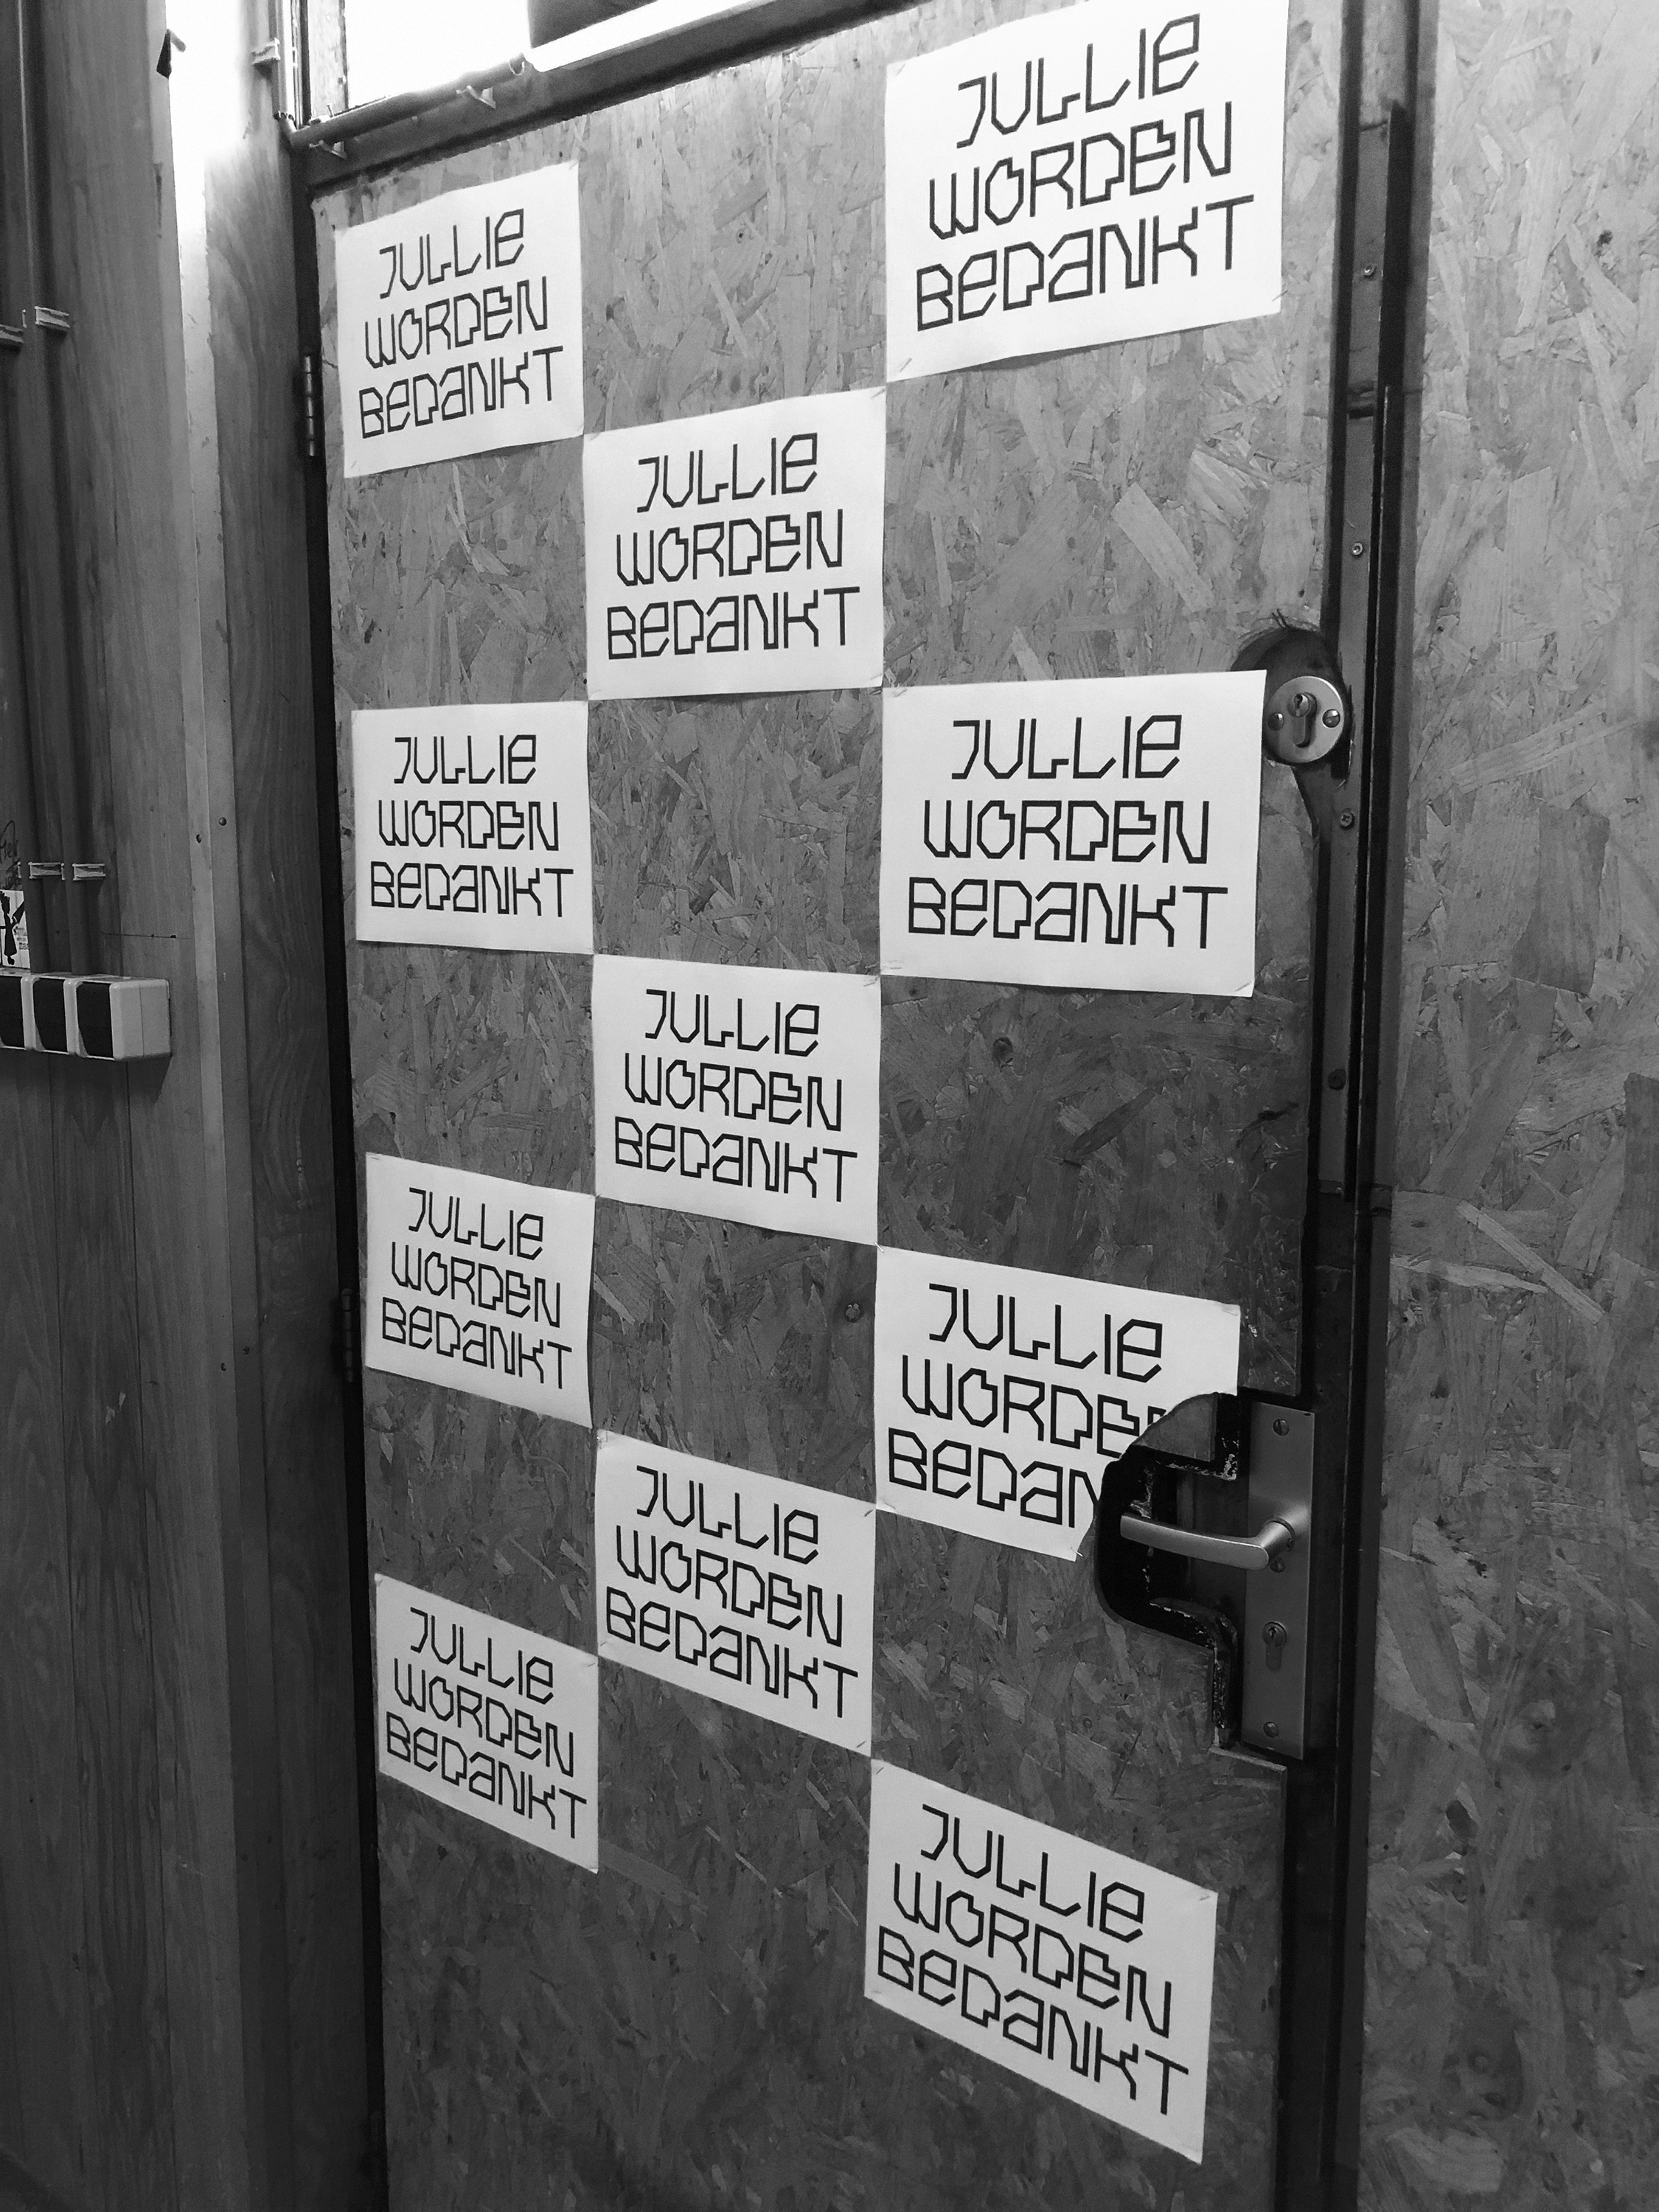 JULLIE
WORDEN
BEDANKT
JULLIE
WORDEN
BEDANKT
JULLIE
WORDEN
BEDANKT
JULLIE
WORDEN
BEDANKT
JULLIE
WORDEN
BEDANKT
JULLIE
WORDEN
BEDANKT
JULLIE
WORDEN
BEDANKT
JULLIE
WORDE
BEDAN
JULLIE
WORDEN
BEDANKT
JULLIE
WORDEN
BEDANKT
JULLIE
WORDEN
BEDANKT